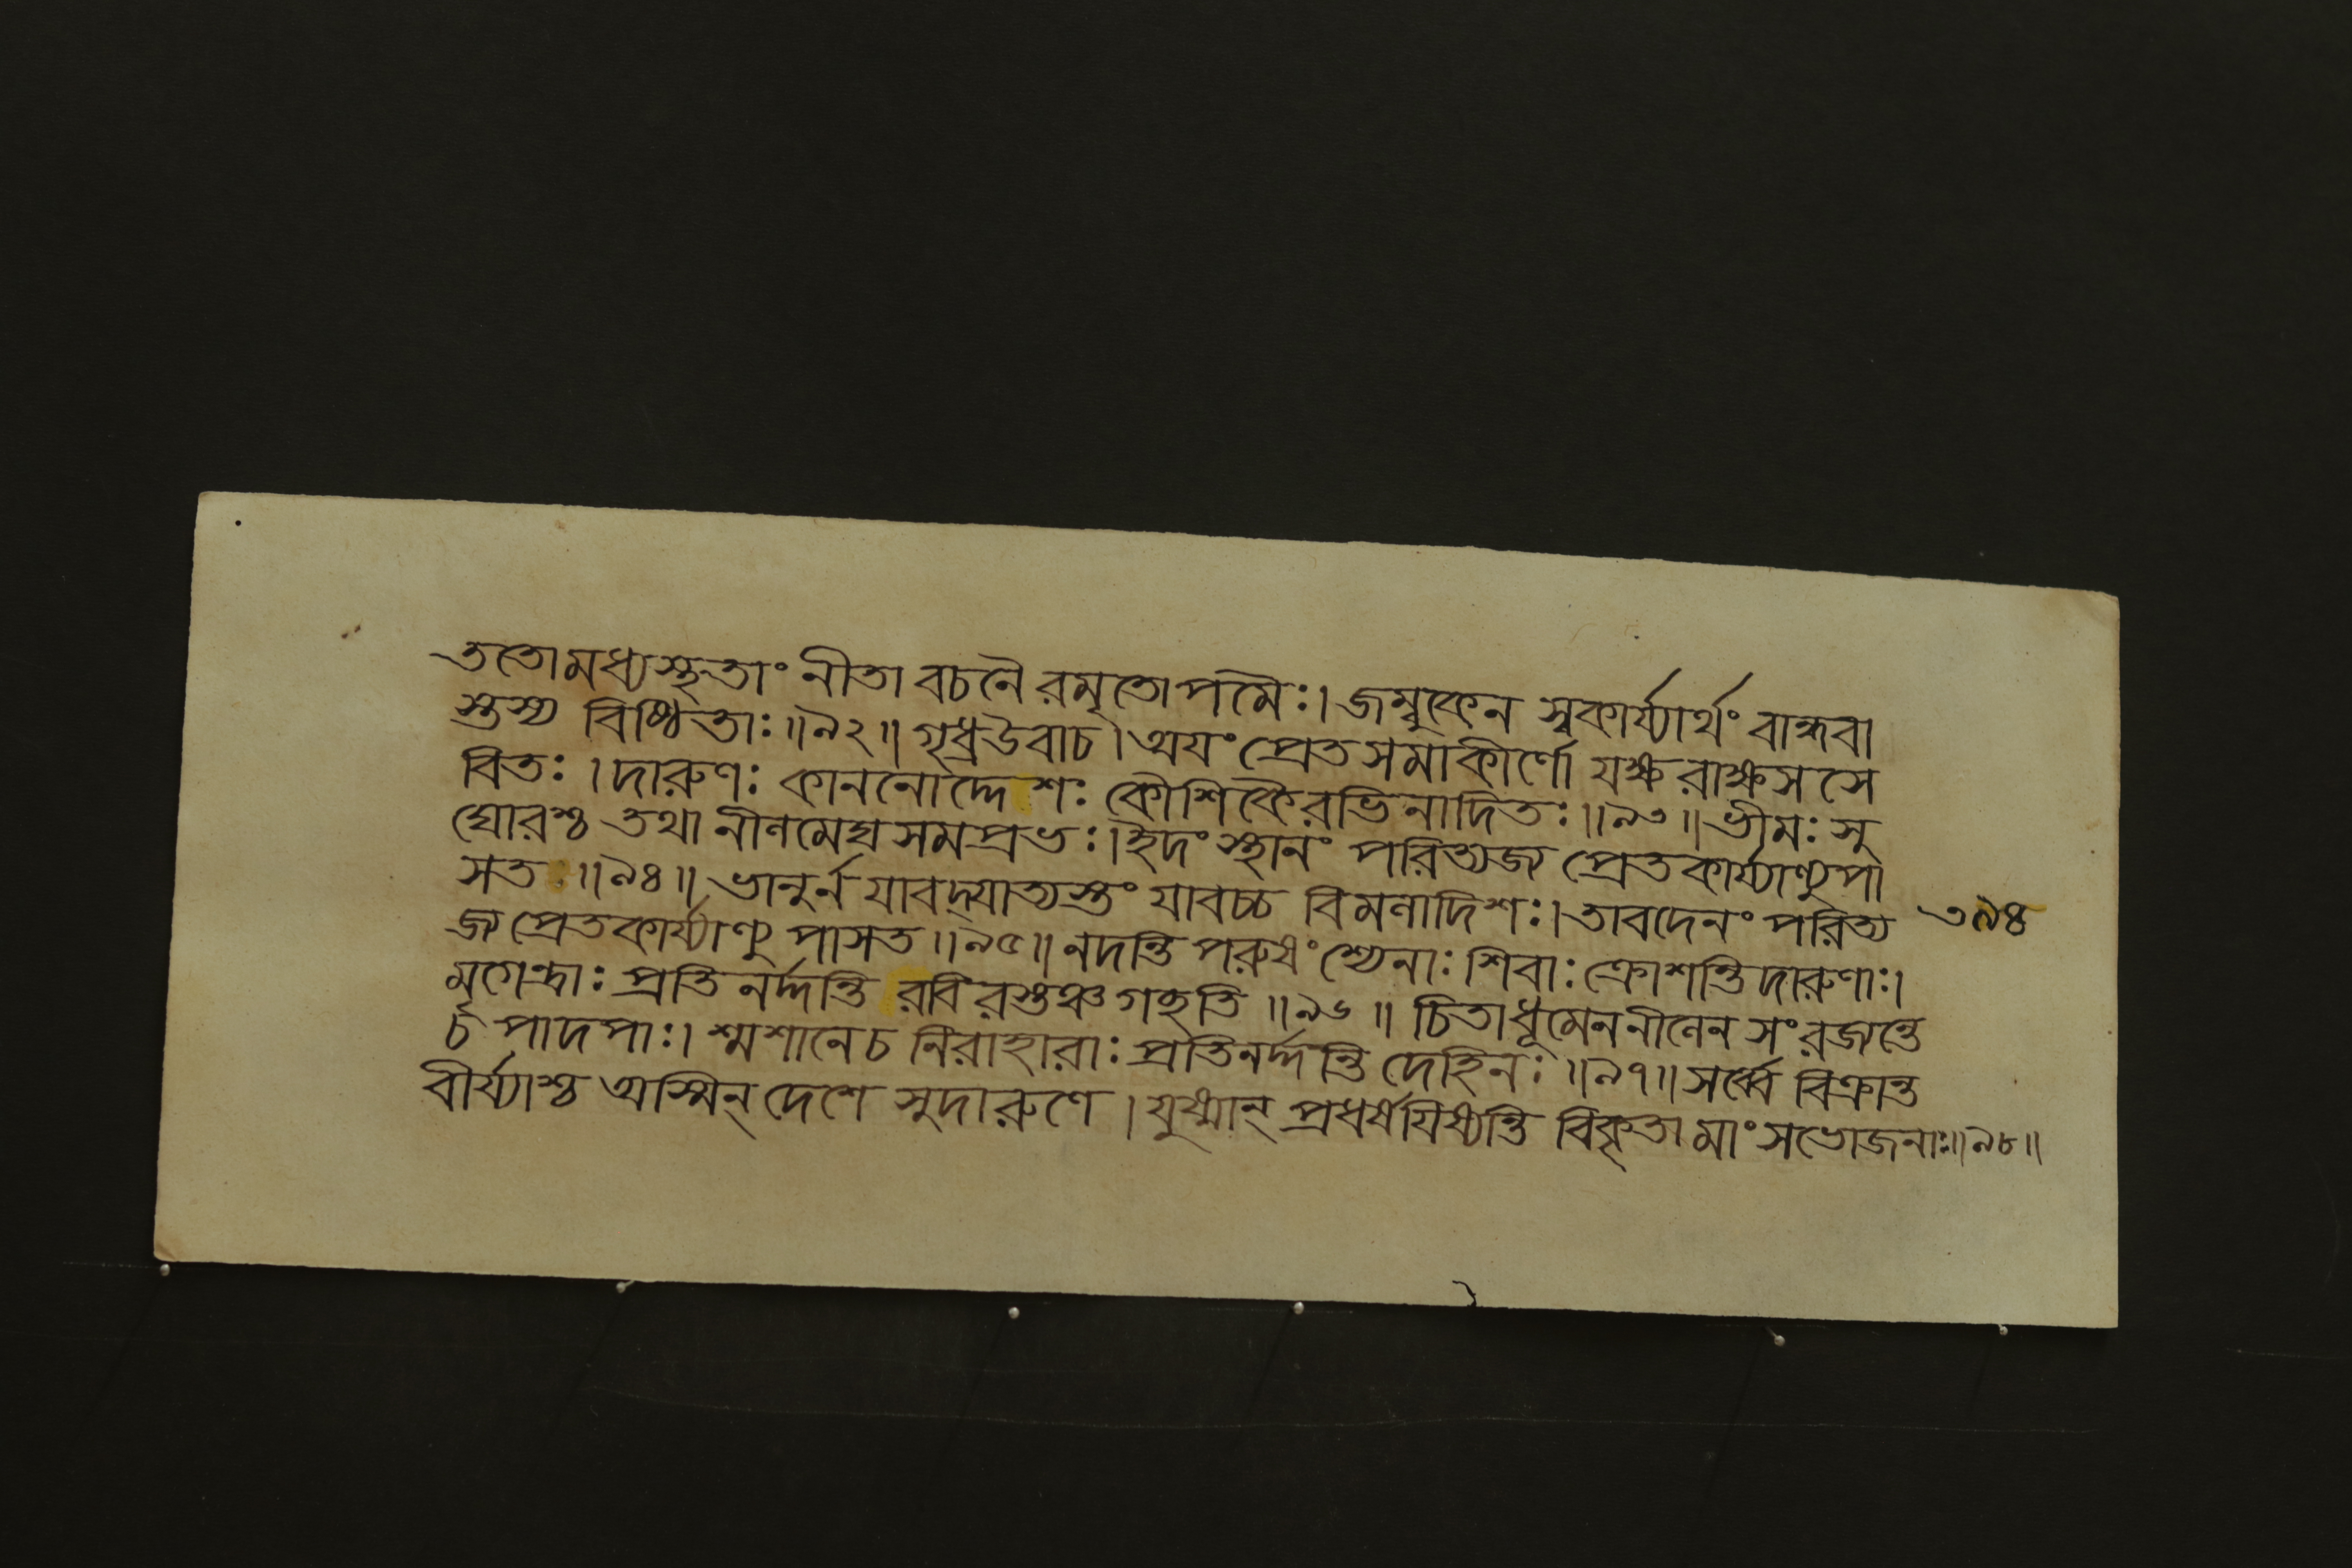 ততোমধ্যস্থতাং নীতা বচনৈ রমৃতোপমৈঃ। জম্বুকেন স্বকার্য্যার্থং বান্ধবা
স্তস্য বিষ্ঠিতাঃ॥৯২॥ গৃধ্রউবাচ। অযং প্রেতসমাকীর্ণো যক্ষরাক্ষসসে
বিতঃ। দারুণঃ কাননোদ্দেশঃ কৌশিকৈরভিনাদিতঃ॥৯৩॥ ভীমঃ সু
ঘোরশ্চ তথা নীলমেঘসমপ্রভঃ। ইদং স্থানং পরিত্যজ্য প্রেতকার্য্যাণ্যুপা
সত॥৯৪॥ ভানুর্ন যাবদ্যাত্যস্তং যাবচ্চ বিমলাদিশঃ। তাবদেনং পরিত্য
জ্য প্রেতকার্য্যাণ্যুপাসত॥৯৫॥ নদন্তি পরুষং শ্যেনাঃ শিবাঃ ক্রোশন্তিদারুণাঃ।
মৃগেন্দ্রাঃ প্রতিনর্দ্দন্তি রবিরস্তঞ্চগচ্ছতি॥৯৬॥ চিতাধূমেননীলেন সংরজ্যন্তে
চ পাদপাঃ। শ্মশানেচ নিরাহারাঃ প্রতিনর্দ্দন্তি দেহিনঃ॥৯৭॥ সর্ব্বে বিক্রান্ত
বীর্য্যাশ্চ অস্মিন্ দেশে সুদারুণে। যুষ্মান্ প্রধর্ষযিষ্যন্তি বিকৃতা মাংসভোজনাঃ॥৯৮॥
৩৯৪